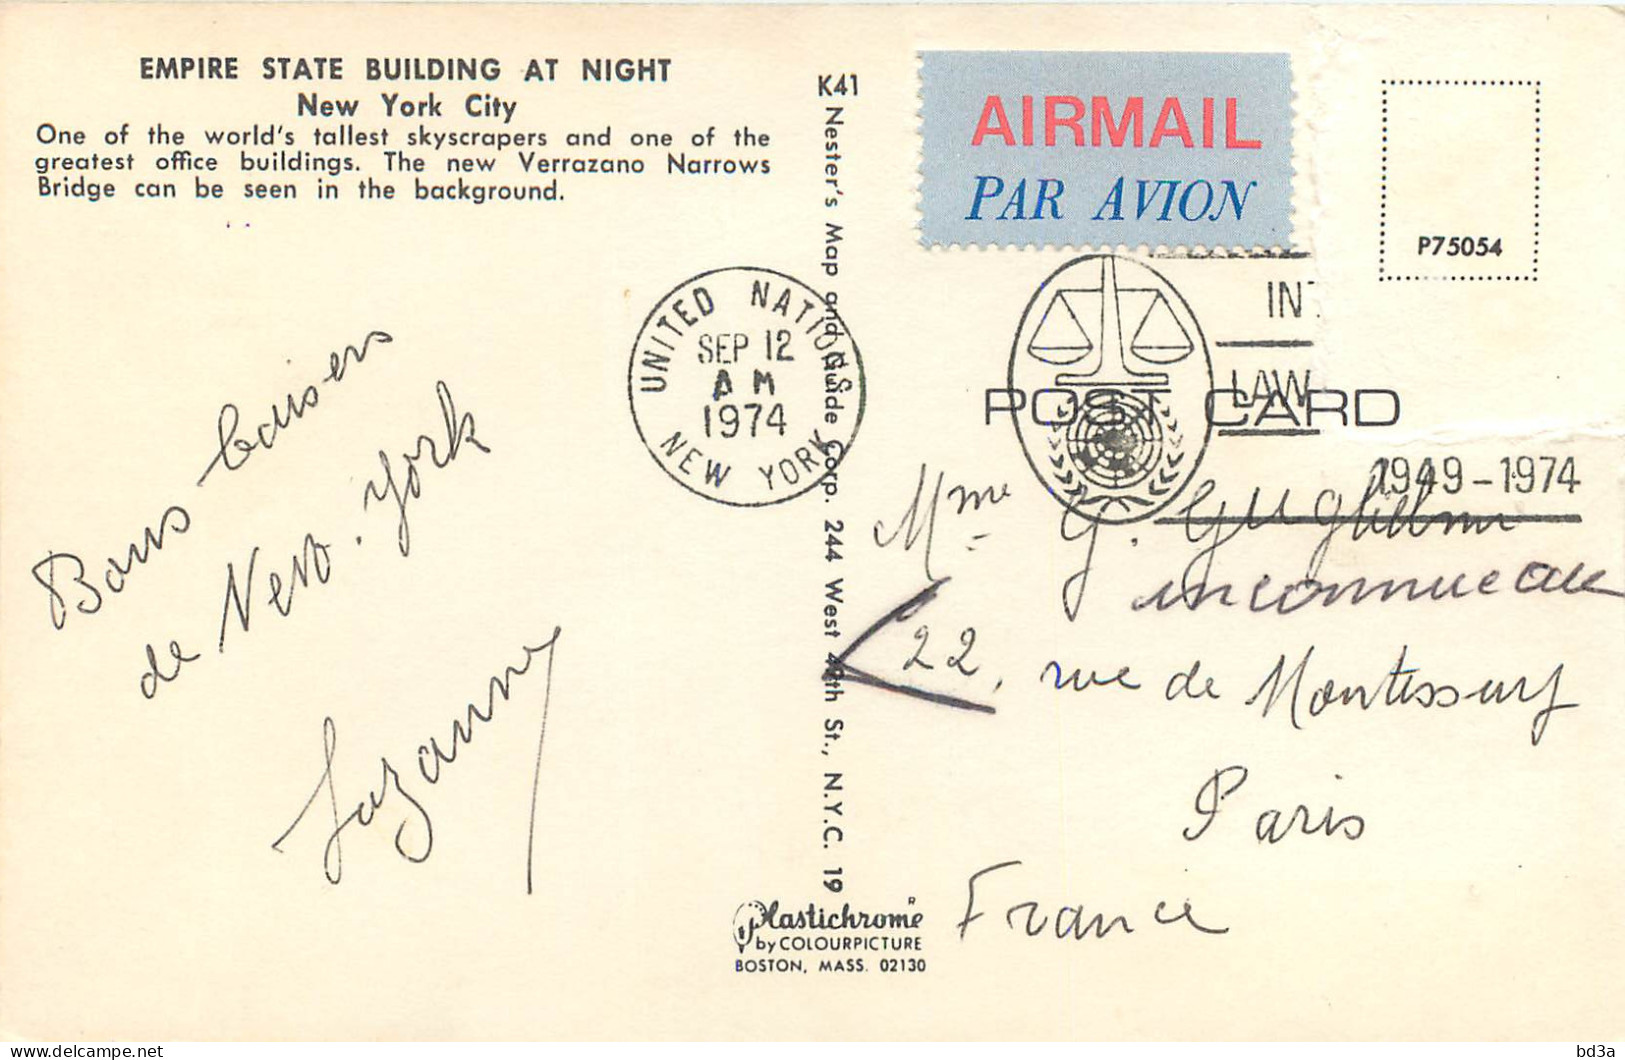 EMPIRE STATE BUILDING AT NIGHT
New York City
One of the world's tallest skyscrapers and one of the
greatest office buildings. The new Verrazano Narrows
Bridge can be seen in the background.
Bons baisers
de New-York
Suzanne
K41
Nester's Map and Guide Corp. 244 West 49th St., N.Y.C. 19
Plastichrome R
by COLOURPICTURE
BOSTON, MASS. 02130
UNITED NATIONS
SEP 12
AM
1974
NEW YORK
AIRMAIL
PAR AVION
P75054
INT
LAW
1949-1974
POST CARD
Mme G. Guglielmi
inconnue au
22, rue de Monttessuy
Paris
France
delcampe.net
bd3a